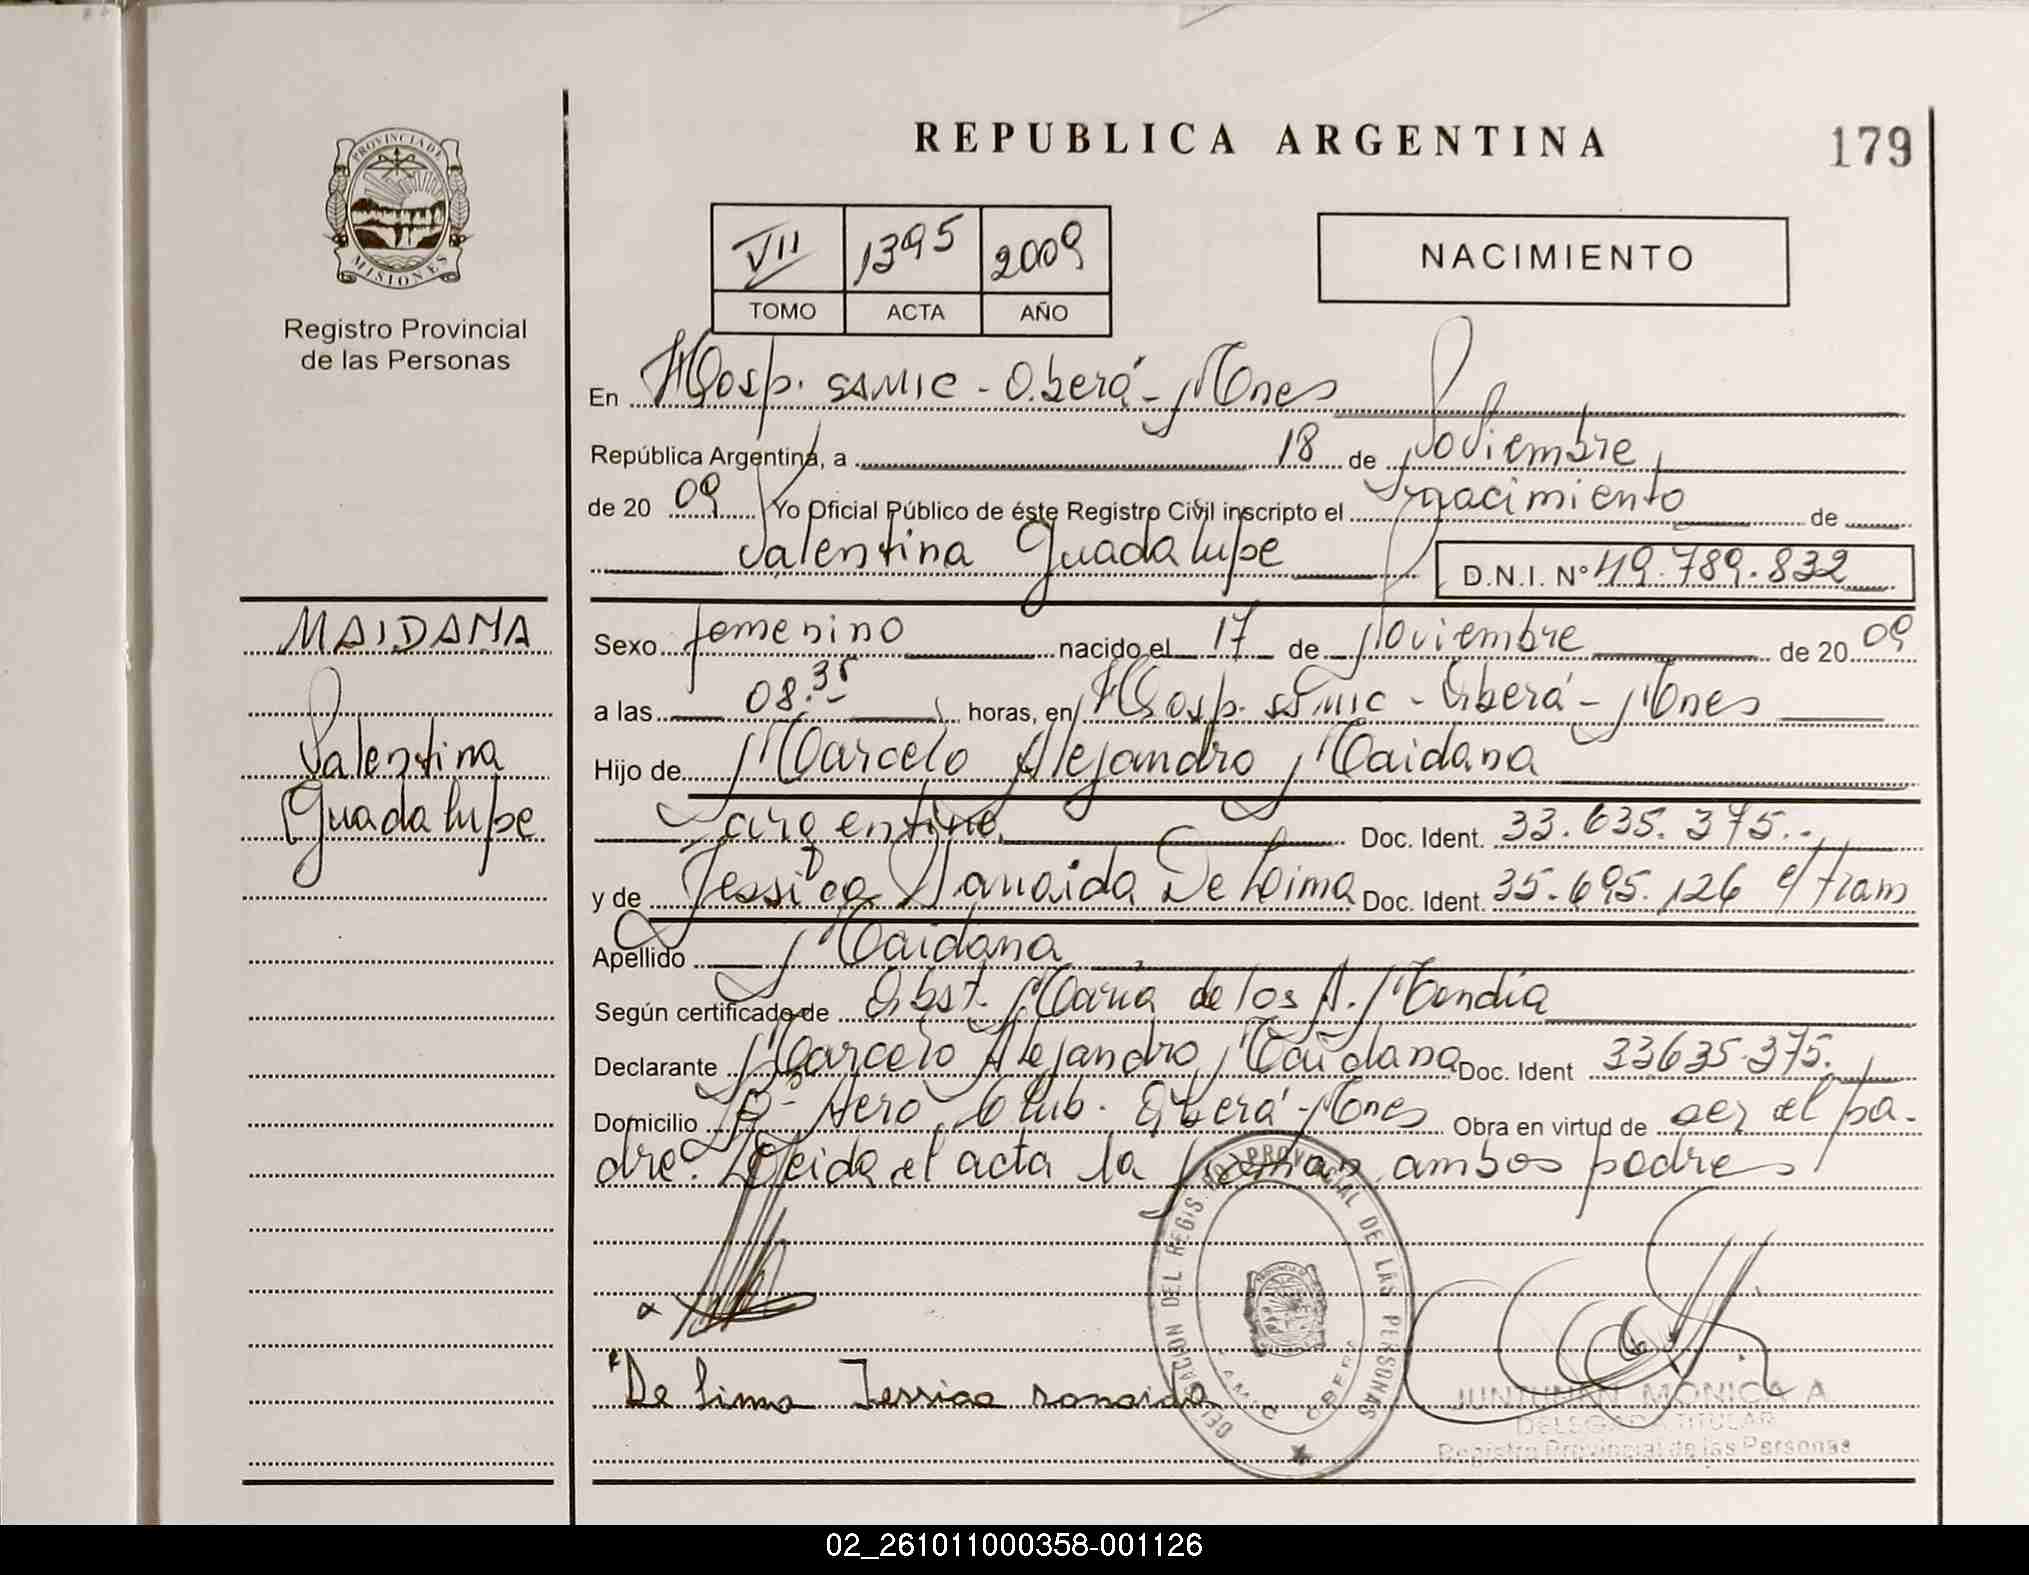 REPUBLICA ARGENTINA
179
PROVINCIA DE
MISIONES
Registro Provincial
de las Personas
VII 1395 2009
TOMO ACTA AÑO
NACIMIENTO
En Hosp. SAMIC - Oberá - Mnes
República Argentina, a 18 de Noviembre
de 20 09 Yo Oficial Público de éste Registro Civil inscripto el nacimiento de
Valentina Guadalupe
D.N.I. Nº 49.789.832
MAIDANA
Valentina
Guadalupe
Sexo femenino nacido el 17 de Noviembre de 20 09
a las 08.35 horas, en Hosp. SAMIC - Oberá - Mnes
Hijo de Marcelo Alejandro Maidana
argentino Doc. Ident. 33.635.375.
y de Jessica Ranaida De Lima Doc. Ident. 35.695.126 e/ tram
Apellido Maidana
Según certificado de Obst. María de los A. Mendia
Declarante Marcelo Alejandro Maidana Doc. Ident 33635.375.
Domicilio Bº Aero Club. Oberá - Mnes Obra en virtud de ser el pa-
dre. Leida el acta la firman ambos padres
De lima Jessica ranaida
DELEGACION DEL REGISTRO PROVINCIAL DE LAS PERSONAS
SAMIC OBERA
JUNTUNEN MONICA A.
DELEGADA TITULAR
Registro Provincial de las Personas
02_261011000358-001126